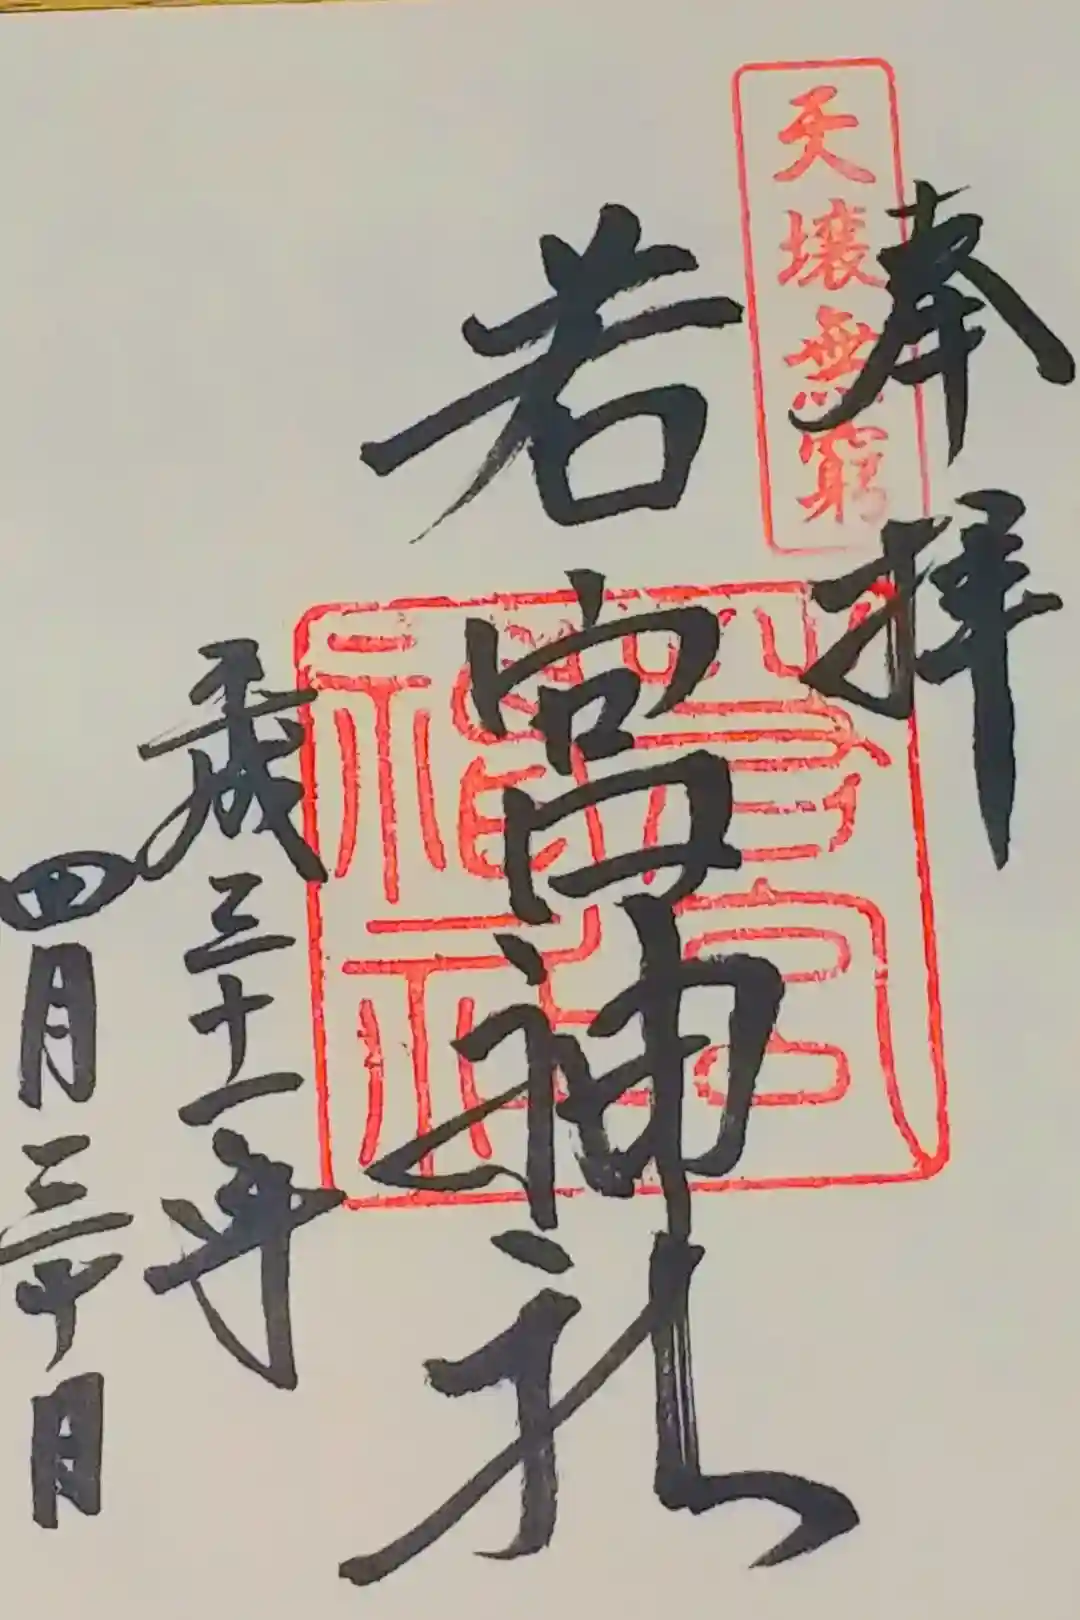 奉拝
天壤無窮
若宮神社
平成三十一年
四月三十日